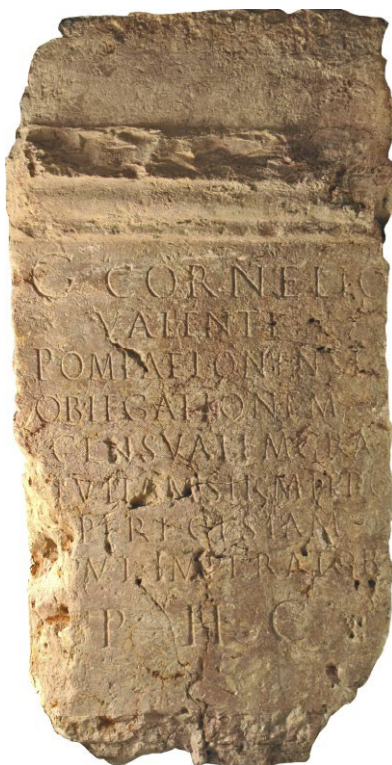 G CORNELIO
VALENTI
POMPAELONENSI
OB LEGATIONEM
CENSVALEM GRA
TVITAM
GESTAM
P H C